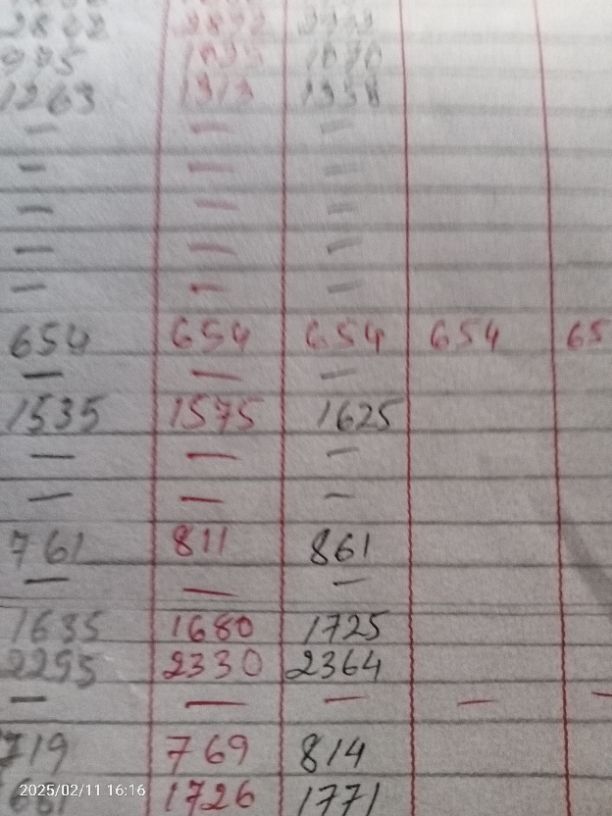 1263 1313 1358
— — —
— — —
— — —
— — —
— — —
654 654 654 654 65
— — —
1535 1575 1625
— — —
— — —
761 811 861
— — —
1635 1680 1725
2295 2330 2364
— — — — —
719 769 814
1726 1771
2025/02/11 16:16